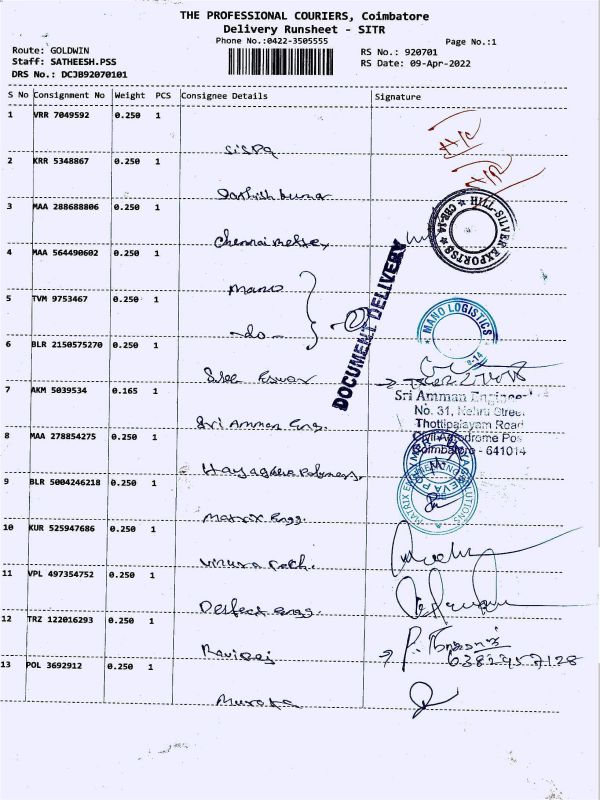 THE PROFESSIONAL COURIERS, Coimbatore
Delivery Runsheet - SITR
Phone No.:0422-3505555
Page No.:1
Route: GOLDWIN
Staff: SATHEESH.PSS
DRS No.: DCJB92070101
RS No.: 920701
RS Date: 09-Apr-2022
S No Consignment No Weight PCS Consignee Details Signature
1 VRR 7049592 0.250 1
2 KRR 5348867 0.250 1
3 MAA 288688806 0.250 1
HILL-SILVER EXPORTSS CBE-14
4 MAA 564490602 0.250 1
Mano
DOCUMENT DELIVERY
5 TVM 9753467 0.250 1
-do-
MANO LOGISTICS
6 BLR 2150575270 0.250 1
Sree Eswar
7 AKM 5039534 0.165 1
Sri Amman Eng.
Sri Amman
No. 31, Nehru Street
Thottipalayam Road
Civil Aerodrome Pos
Coimbatore - 641014
8 MAA 278854275 0.250 1
9 BLR 5004246218 0.250 1
Matrix Engg.
10 KUR 525947686 0.250 1
11 VPL 497354752 0.250 1
Perfect Engg.
12 TRZ 122016293 0.250 1
Raviraj
6382957128
13 POL 3692912 0.250 1